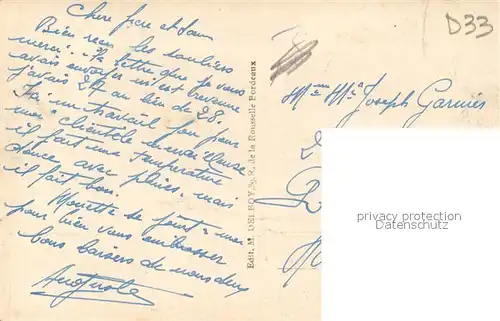 Cher frère et Sœur
Bien reçu les souliers
merci. La lettre que je vous
avais envoyer m'est revenue
j'avais 27 au lieu de 28.
J'ai un travail fou pour
mon clientèle merveilleuse
il fait une température
douce avec pluies. mais
il fait bon.
Monette se joint à moi
pour bien vous embrasser
bons baisers de nous deux
Edit. M. DELBOY, R. de la Rousselle Bordeaux
D33
Joseph Garnier
privacy protection
AnsichtskartenHandel.com